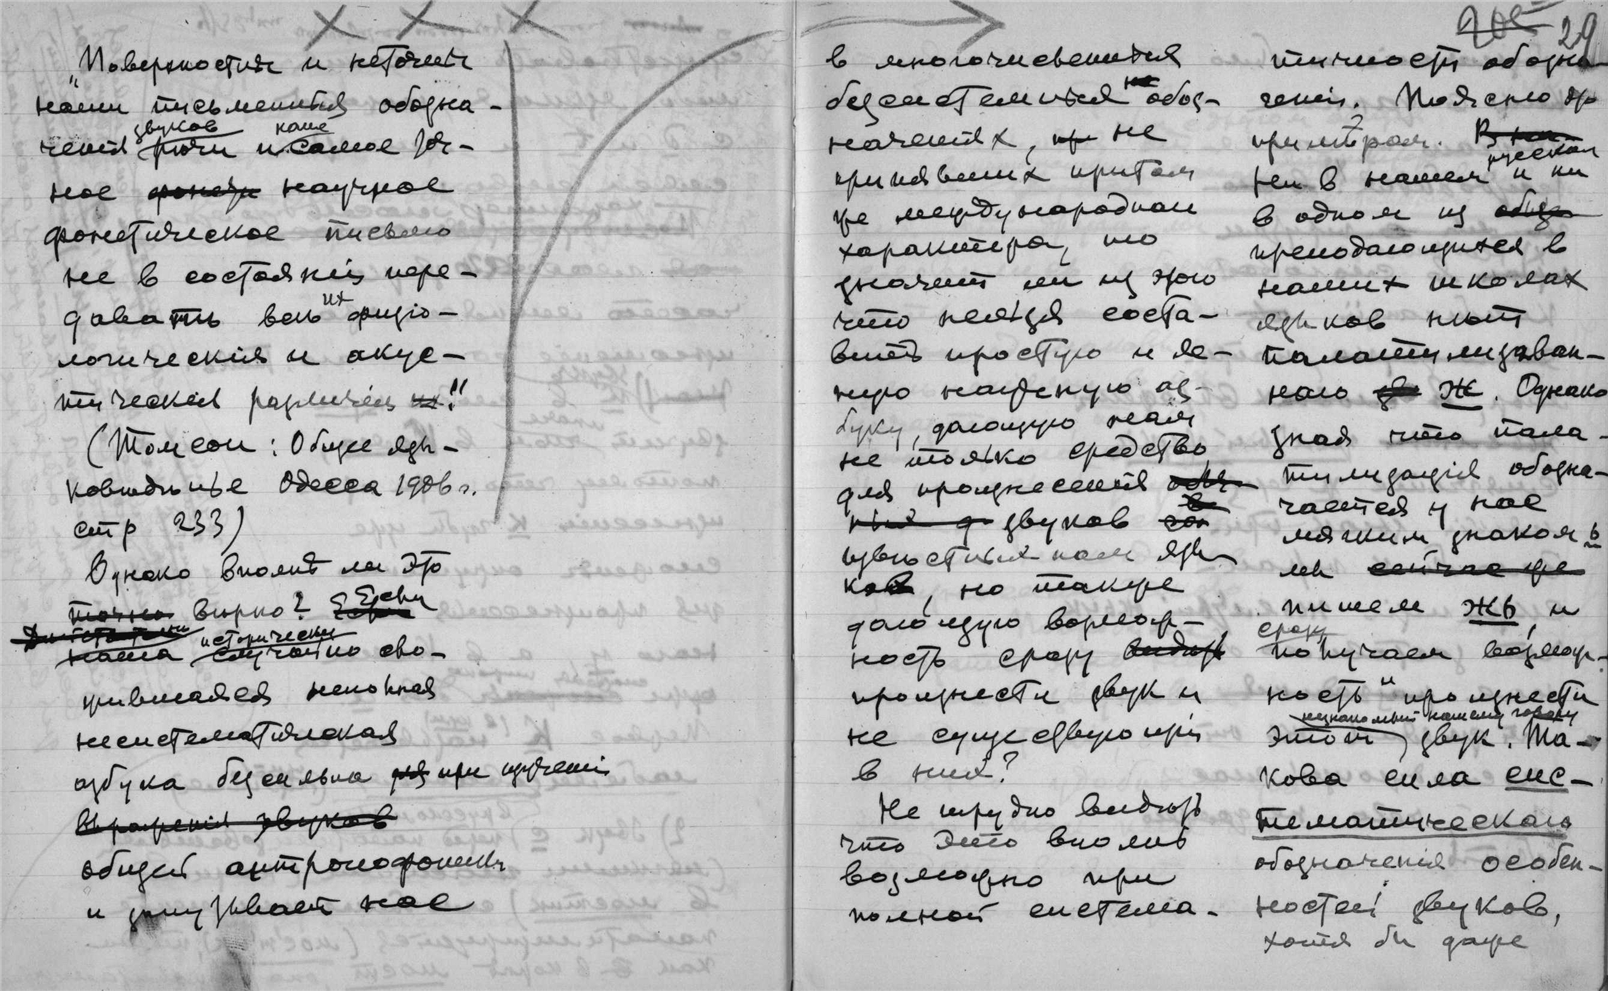 "Поверхностны и неточны
наши письменныя обозна-
чения звуков речи и наше самое уч-
ное научное
фонетическое письмо
не в состоянiи пере-
давать всех их физiо-
логическiя и акус-
тическiя различiя."
(Томсон: Общее язы-
коведенье Одесса 1906 г.
стр 233)
Однако вполнѣ ли это
точно вѣрно? Если
наша исторически случайно сло-
жившаяся неполная
несистематическая
азбука безсильна при изученiи
выраженiя звуков
общей антропофоники
и запутывает нас
в многочисленных
безсистемных обоз-
начениях, не
принявших притом
же международнаго
характера, то
значит ли из этого
что нельзя соста-
вить простую и яс-
ную научную аз-
буку, дающую нам
не только средство
для произнесения
звуков
извѣстных нам язы
ков, но также
дающую возмож-
ность сразу видѣть
произнести звук и
не существующiй
в них?
Не трудно видѣть
что это вполнѣ
возможно при
полной система-
29
тичности обозна
ченiя. Поясню это
примѣром.
Ни в нашем русском и ни
в одном из
преподающихся в
наших школах
языков нѣт
палатализован-
наго ж. Однако
зная что пала-
тализацiя обозна-
чается у нас
мягким знаком ь
мы сейчас же
пишем жь, и
сразу получаем возмож-
ность и произнести
этот незнакомый нашему говору звук. Та-
кова сила сис-
тематическаго
обозначенiя особен-
ностей звуков,
хотя бы даже